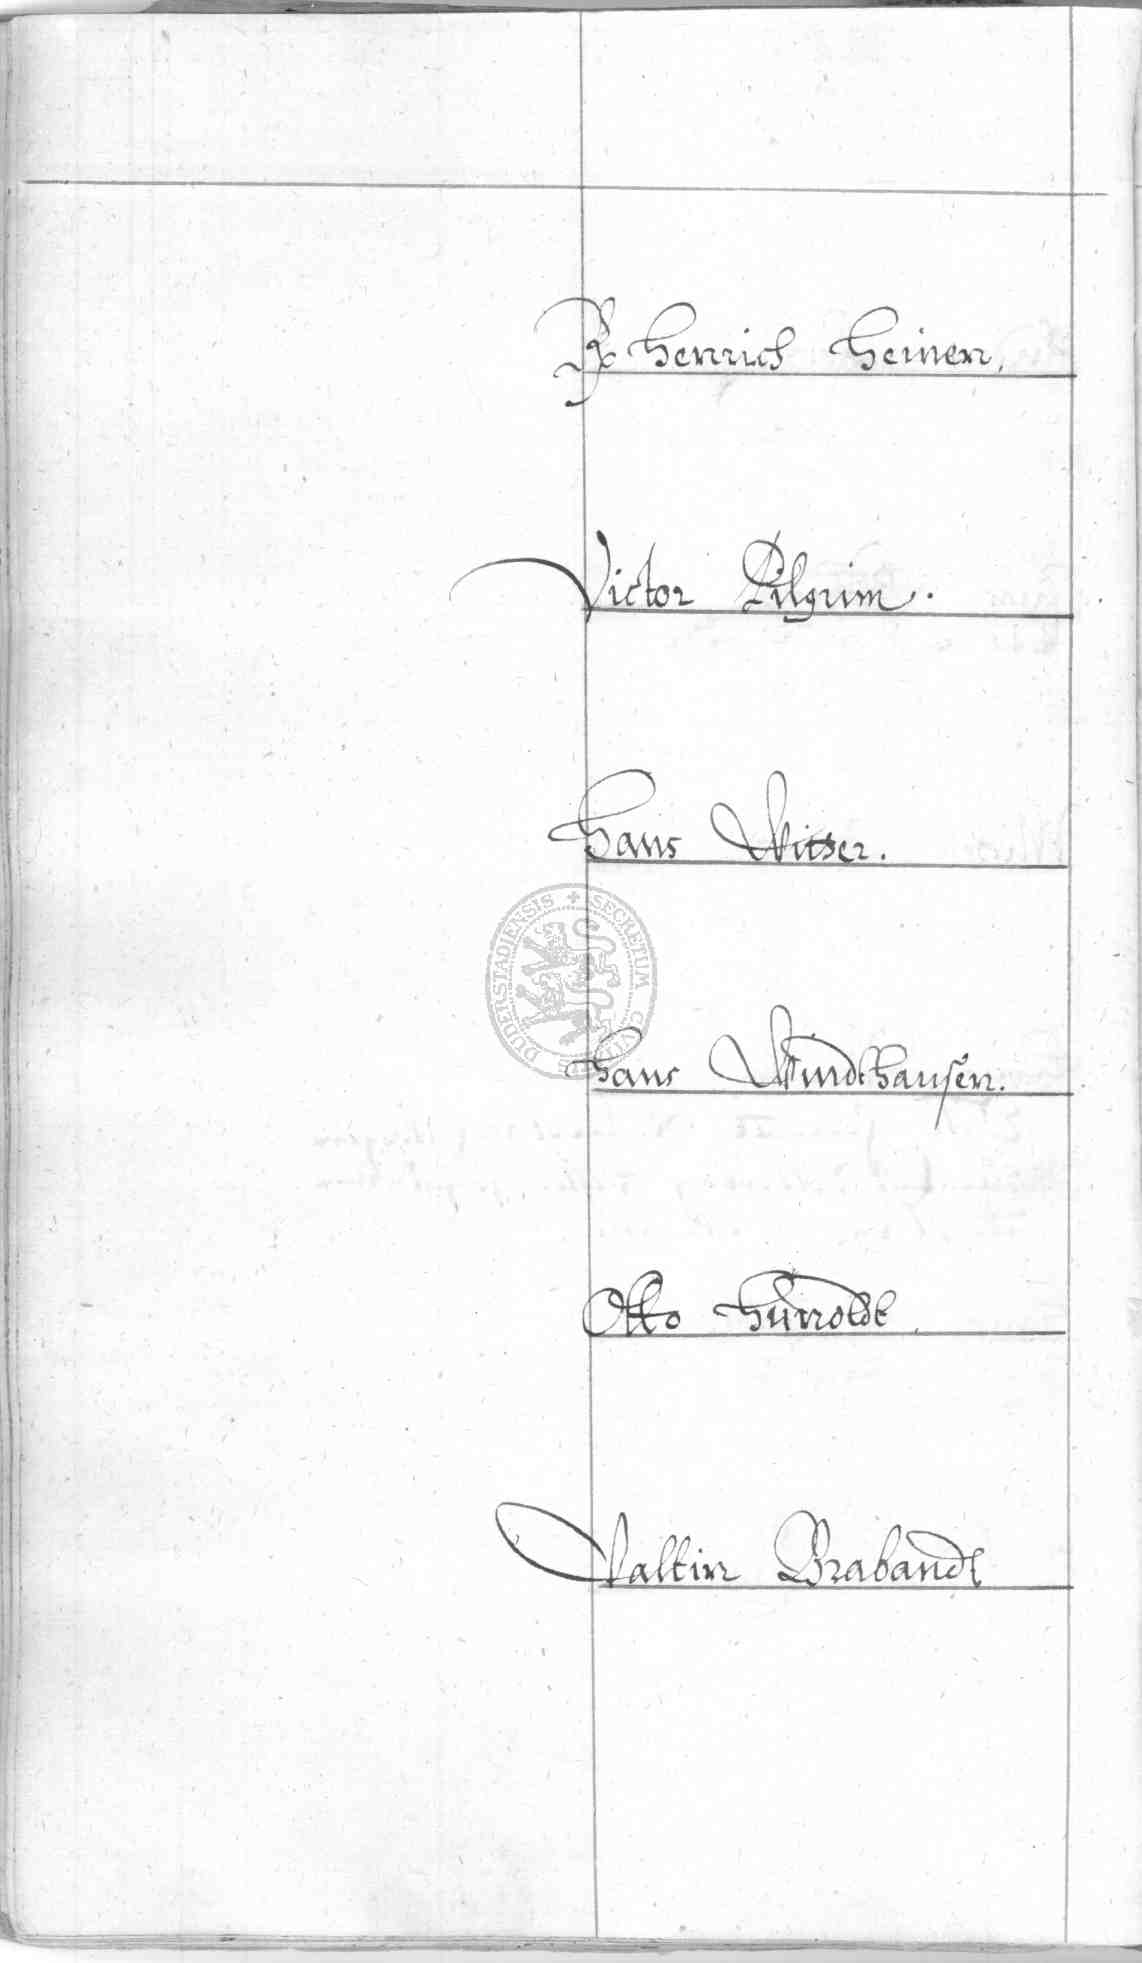 Henrich Heinen,
Victor Pilgrim.
Hans Witzer.
SECRETUM CIVITATIS DUDERSTADIENSIS
Hans Windthausen.
Otto Hunoldt
Valtin Brabandt